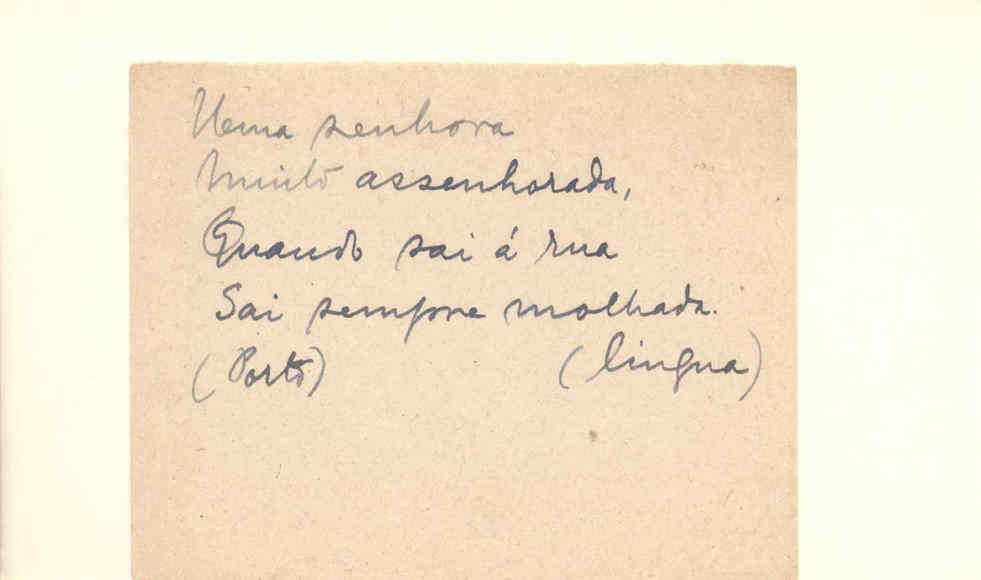 Uma senhora
Muito assenhorada,
Quando sai á rua
Sai sempre molhada.
(Porto) (lingua)